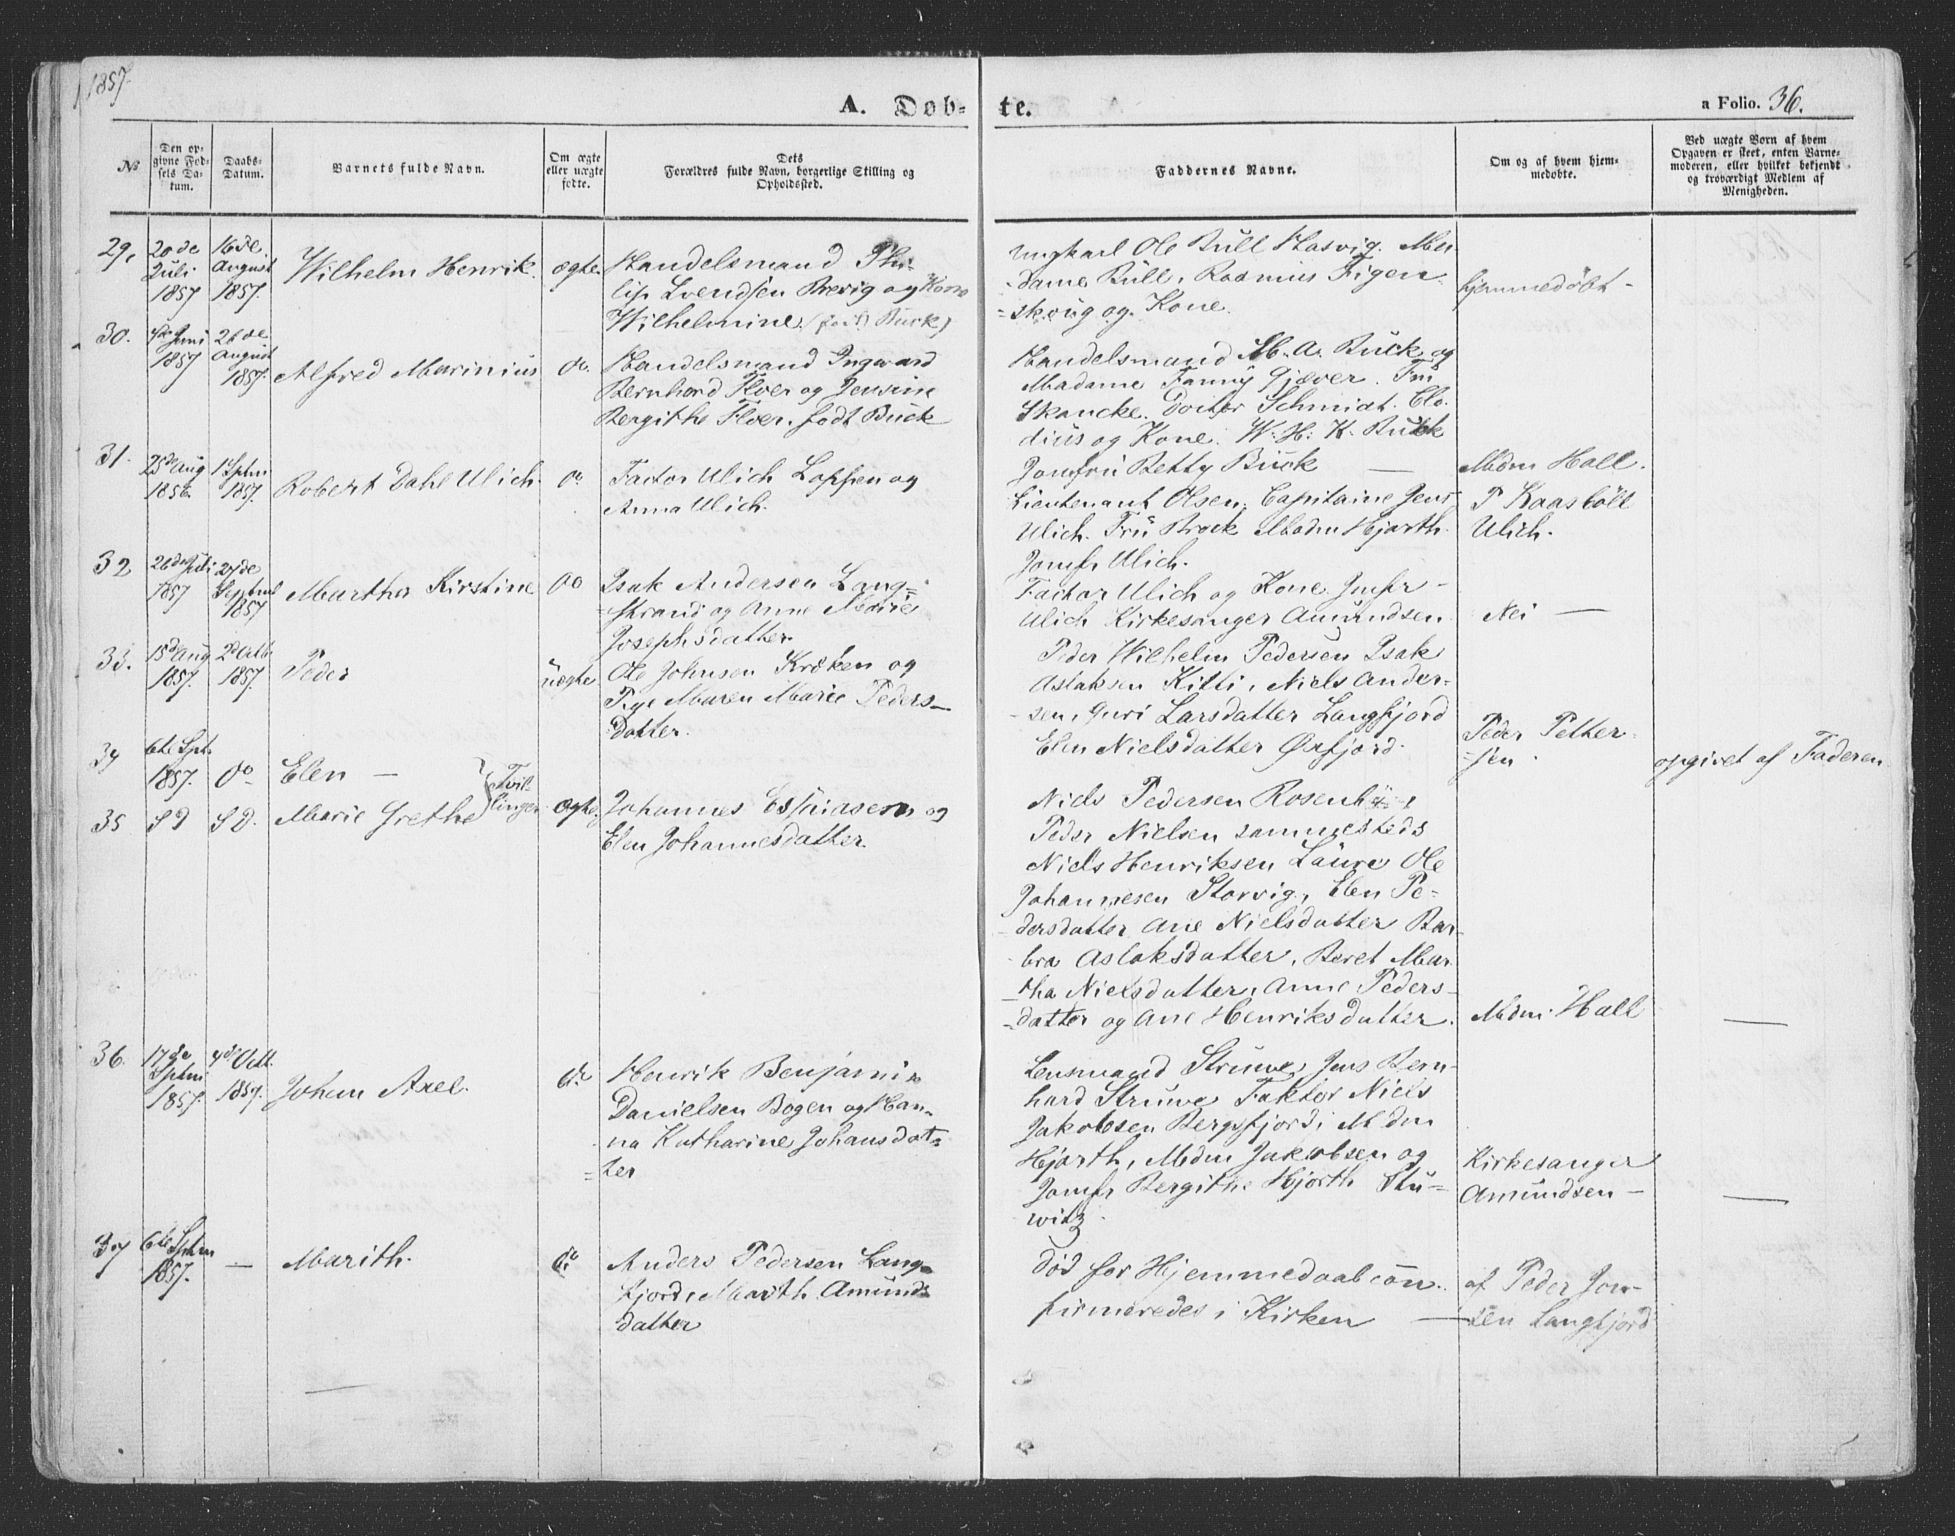 1857.
A. Døb-
te.
a Folio. 36.
No
Den op-
givne Fød-
sels Da-
tum.
Daabs-
Datum.
Barnets fulde Navn.
Om ægte
eller uægte
fødte.
Dets
Forældres fulde Navn, borgerlige Stilling og
Opholdssted.
Faddernes Navne.
Om og af hvem hjem-
medøbte.
Ved uægte Børn af hvem
Opgaven er skeet, enten Barne-
moderen, eller hvilket bekjendt
og troværdigt Medlem af
Menigheden.
29,
20de
Juli
1857
16de
August
1857.
Wilhelm Henrik.
ægte
Handelsmand Phi-
lip Svendsen Brevig og Kone
Wilhelmine (født Buck)
Ungkarl Ole Bull Hasvig. Ma-
dame Bull, Rasmus Figen-
=skoug og Kone.
hjemmedøbt -
30.
Juni
1857
26de
August
1857.
Alfred Marinius
do.
Handelsmand Ingward
Bernhard Floer og Jensine
Bergithe Floer. født Buck
Handelsmand M. A. Buck og
Madame Fanny Gjæver. Fru
Skancke. Doctor Schmidt. Clo-
dius og Kone. W: H: K. Buck
Jomfru Betty Buck
31.
25de Aug
1856.
1 Sptm
1857.
Robert Dahl Ulich.
do
Factor Ulich Loppen og
Anna Ulich.
Lieutenant Olsen, Capitaine Jens
Ulich. Fru Brock Madm Hjorth.
Jomfr Ulich.
Mdm Hall.
P Kaasbøll
Ulich.
32
26de Juli
1857
27de
Septmb
1857
Martha Kirstine
do
Isak Andersen Lang=
=strand og Anne Marie
Josephsdatter.
Factor Ulich og Kone Jmfr -
Ulich Kirkesanger Amundsen.
Nei -
33.
15de Aug
1857.
2d Octb
1857.
Peder
uægte
Ole Johnsen Kroken og
Pige Maren Marie Peders-
Datter.
Peder Wilhelm Pedersen Isak
Aslaksen Kitti, Niels Ander-
sen, Guri Larsdatter Langfjord
Elen Nielsdatter Øxfjord.
Peder Petter-
sen.
opgivet af Faderen
34
6te Spt.
1857.
do
Elen -
Tvil-
linger
35
S D
S D.
Marie Grethe
ægte,
Johannes Esaiasen og
Elen Johannesdatter.
Niels Pedersen Rosenh
Peder Nielsen sammesteds
Niels Henriksen Laure Ole
Johannesen Storvig, Elen Pe-
dersdatter Ane Nielsdatter Bar-
bra Aslaksdatter, Beret Mar-
tha Nielsdatter, Anne Peders-
=datter og Ane Henriksdatter.
Mdm. Hall
36.
17de
Sptm
1857.
4de Octb.
1857.
Johan Axel.
do
Henrik Benjamin
Danielsen Bogen og Han-
na Katharine Johansdat=
=ter
Lensmand Struwe, Jens Bern-
hard Struwe Faktor Niels
Jakobsen Bergsfjord, Mdm
Hjorth, Mdm Jakobsen og
Jomfr Bergithe Hjorth Stu=
witz.
Kirkesanger
Amundsen -
37
6te Sptm
1857.
-
Marith.
do
Anders Pedersen Lang=
fjord, Marth Amunds
datter
død før Hjemmedaab con-
firmeredes i Kirken
af Peder Jon-
sen Langfjord